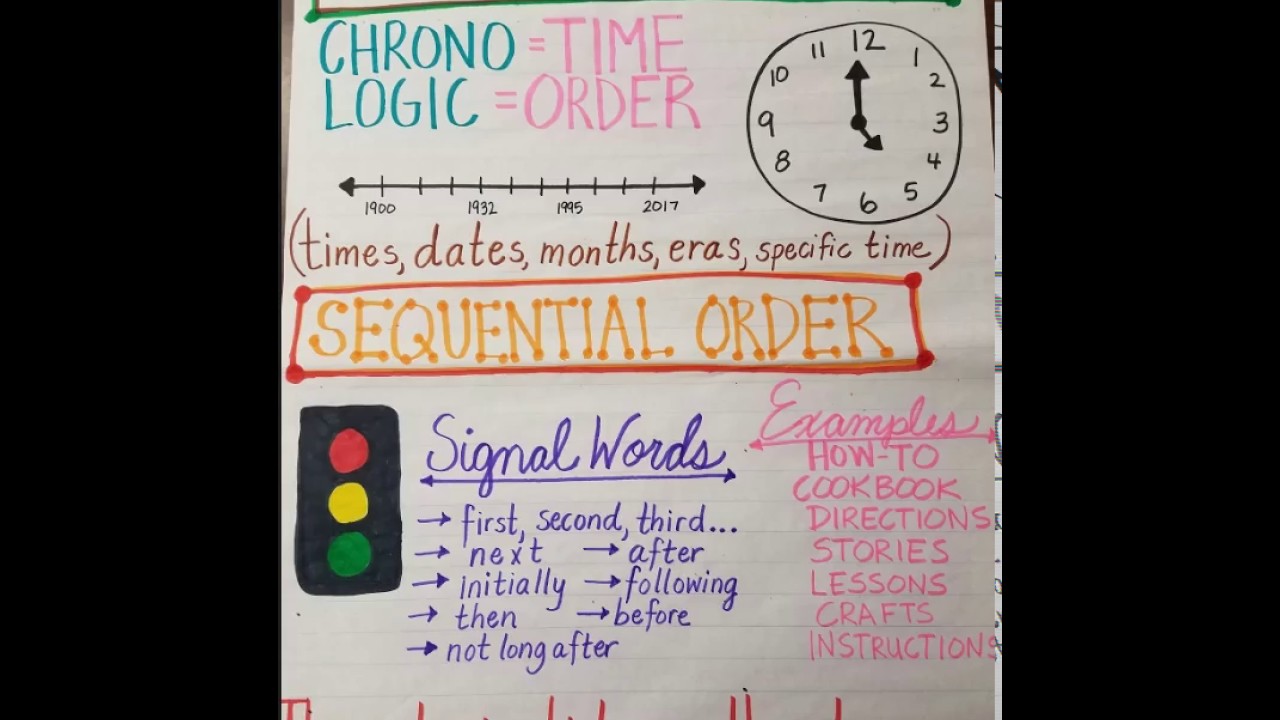 CHRONO = TIME
LOGIC = ORDER
11 12 1
10 2
9 3
8 4
7 6 5
1900 1932 1995 2017
(times, dates, months, eras, specific time)
SEQUENTIAL ORDER
Signal Words
→ first, second, third...
→ next → after
→ initially → following
→ then → before
→ not long after
Examples
HOW-TO
COOKBOOK
DIRECTIONS
STORIES
LESSONS
CRAFTS
INSTRUCTIONS